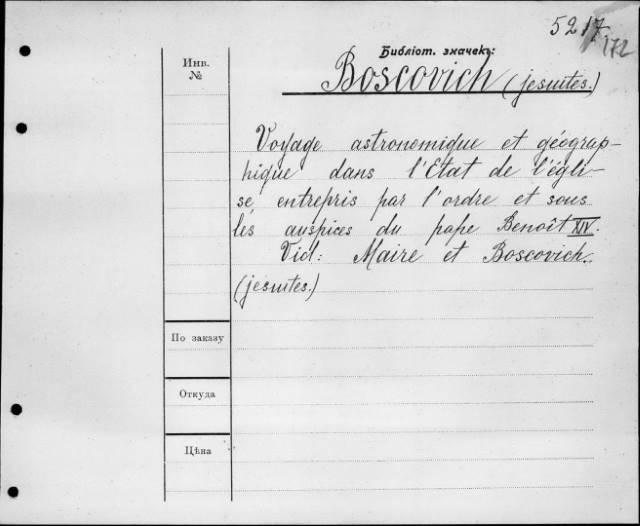 5217.
172
Библіот. значекъ:
Инв.
№
Boscovich (jesuites.)
Voyage astronomique et géograp-
hique dans l'Etat de l'égli-
se entrepris par l'ordre et sous
les auspices du pape Benoît XIV.
Vid: Maire et Boscovich.
(jesuites.)
По заказу
Откуда
Цѣна